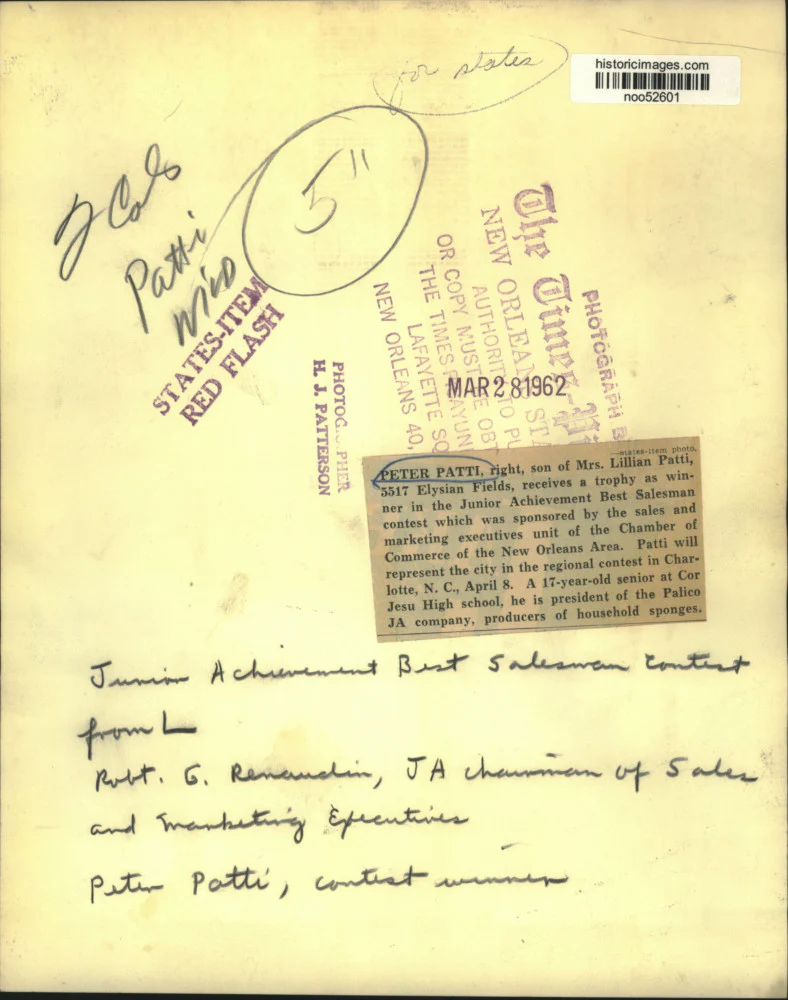 for states
historicimages.com
noo52601
2 Cols
5"
Patti
STATES-ITEM
RED FLASH
PHOTOGRAPHER
H. J. PATTERSON
PHOTOGRAPH B
The Times-Pi
NEW ORLEANS STA
AUTHORITY TO PU
OR COPY MUST BE OBT
THE TIMES PICAYUN
LAFAYETTE SQ
NEW ORLEANS 40,
MAR 28 1962
—states-item photo.
PETER PATTI, right, son of Mrs. Lillian Patti,
5517 Elysian Fields, receives a trophy as win-
ner in the Junior Achievement Best Salesman
contest which was sponsored by the sales and
marketing executives unit of the Chamber of
Commerce of the New Orleans Area. Patti will
represent the city in the regional contest in Char-
lotte, N. C., April 8. A 17-year-old senior at Cor
Jesu High school, he is president of the Palico
JA company, producers of household sponges.
Junior Achievement Best Salesman Contest
from L
Robt. G. Renaudin, JA chairman of Sales
and Marketing Executives
Peter Patti, contest winner